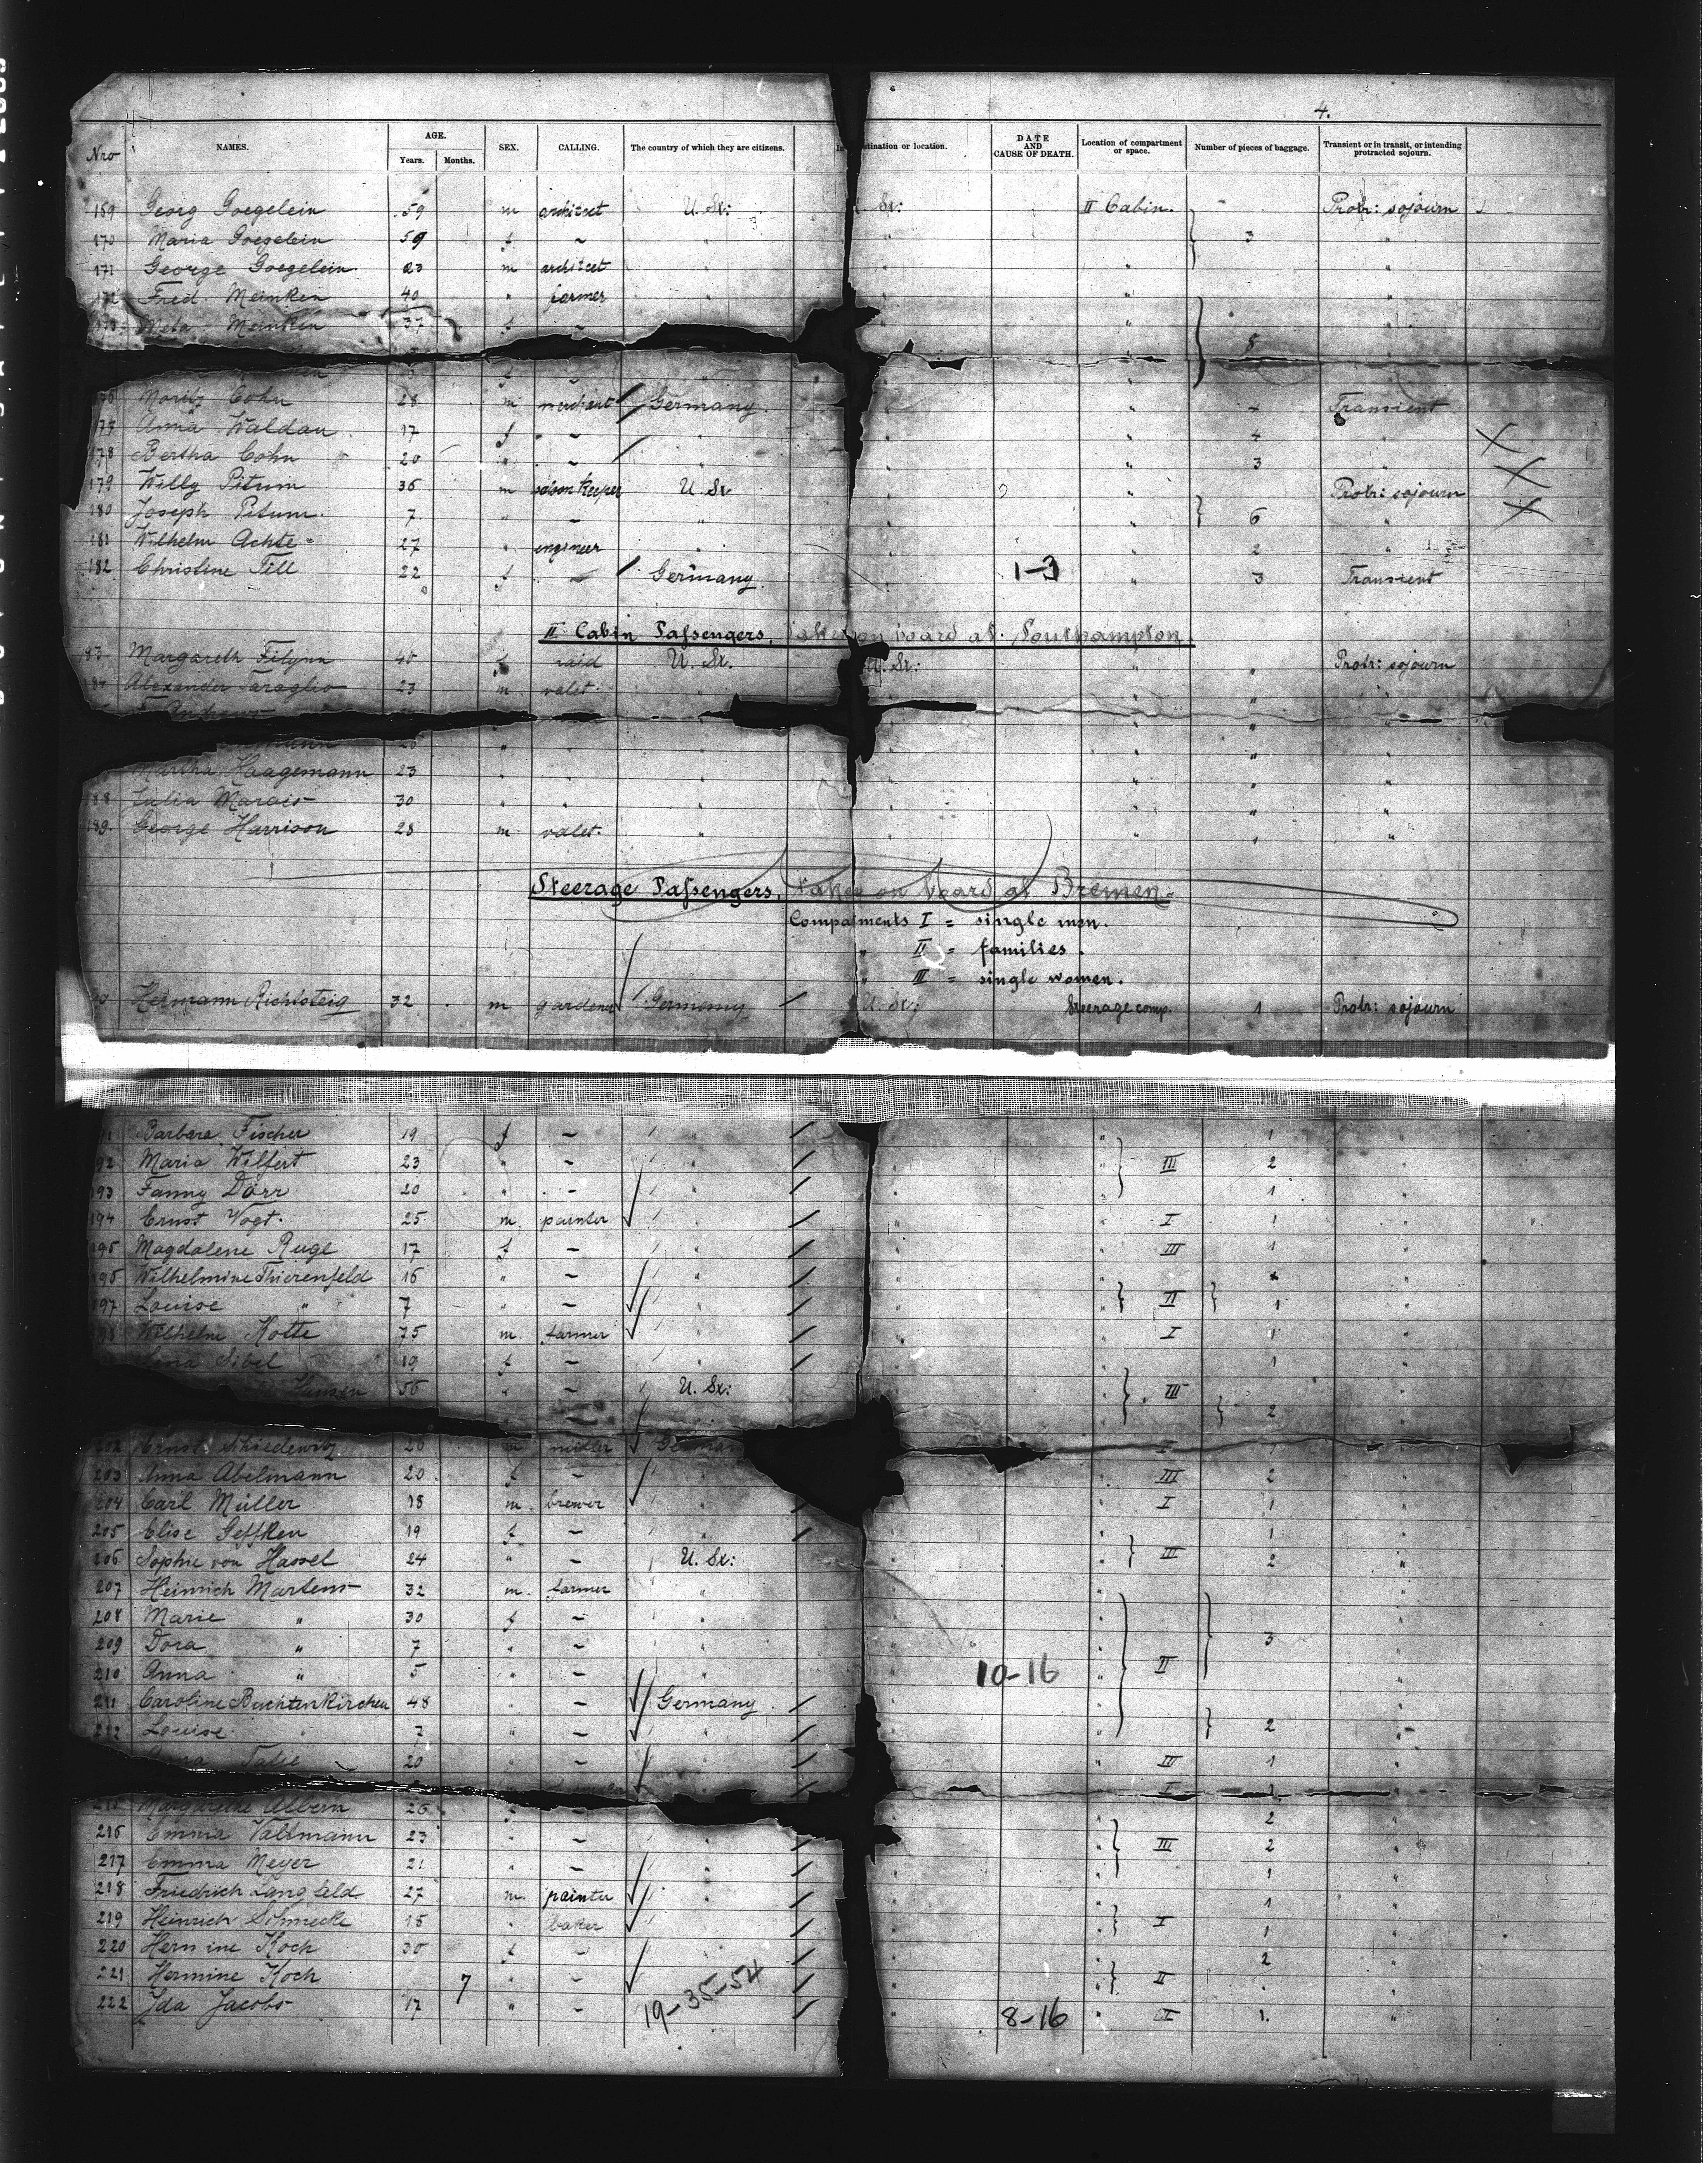 4.
Nro NAMES. AGE. Years. Months. SEX. CALLING. The country of which they are citizens. DATE AND CAUSE OF DEATH. Location of compartment or space. Number of pieces of baggage. Transient or in transit, or intending protracted sojourn.
169 Georg Goegelein 59 m architect U. St: St: II Cabin. - Protr: sojourn
170 Maria Goegelein 59 f ~ " " " 3 "
171 George Goegelein 23 m architect " " " "
172 Fred. Meinken 40 " farmer " " " "
173 Meta Meinken 37 f ~ " " "
5
Moritz Cohn 28 m merchant Germany " " Transient
177 Anna Waldau 17 f ~ " " 4 "
178 Bertha Cohn 20 " ~ " " " 3 "
179 Willy Pitum 36 m saloon keeper U. St " " Protr: sojourn
180 Joseph Pitum 7 " ~ " " " 6 "
181 Wilhelm Achte 27 " engineer " " " 2 "
182 Christine Till 22 f ~ Germany " 1-3 " 3 Transient
II Cabin Passengers, taken on board at Southampton.
183 Margareth 40 f maid U. St. U. St: " " Protr: sojourn
184 Alexander 23 m valet. " " " "
Martha Haagemann 23 " " " " " " "
188 Julia Marais 30 " " " " " " "
189. George Harrison 28 m valet. " " " " "
Steerage Passengers, taken on board at Bremen
Compartments I = single men.
" II = families.
" III = single women.
Hermann Richtsteig 32 m gardener Germany U. St: Steerage comp. 1 Protr: sojourn
Barbara Fischer 19 f ~ " " " 1 "
192 Maria Wilfert 23 " ~ " " " III 2 "
193 Fanny Dörr 20 " ~ " " " 1 "
194 Ernst Vogt. 25 m. painter " " " I 1 "
195 Magdalene Ruge 17 f ~ " " " III 1 "
196 Wilhelmine Thierenfeld 16 " ~ " " " "
197 Louise " 7 " ~ " " " II 1 "
198 Wilhelm Kotte 75 m. farmer " " " I 1 "
Sibel 19 f ~ " " " 1 "
Hansen 56 " ~ U. St: " " III "
2
202 Ernst 20 m miller German I 1
203 Anna Abelmann 20 f ~ " " III 2 "
204 Carl Müller 18 m. brewer " " I 1 "
205 Elise Geffken 19 f ~ " " " 1 "
206 Sophie von Hassel 24 " ~ U. St: " " III 2 "
207 Heinrich Martens 32 m. farmer " " " "
208 Marie " 30 f ~ " " " "
209 Dora " 7 " ~ " " " 3 "
210 Anna " 5 " ~ " " 10-16 " II "
211 Caroline Buchtenkirchen 48 " ~ Germany " " "
212 Louise " 7 " ~ " " " 2 "
Anna 20 " ~ " " " III 1 "
I 1 "
215 Margarethe Albern 26 f " 2 "
216 Emma Valtmann 23 " ~ " " " III 2 "
217 Emma Meyer 21 " ~ " " " 1 "
218 Friedrich Langfeld 27 m. painter " " " 1 "
219 Heinrich Schmecke 15 " baker " " " I 1 "
220 Hermine Koch 30 f ~ " " " 2 "
221 Hermine Koch 7 " ~ " " " II "
222 Ida Jacobs 17 " ~ 19-35-54 " 8-16 " III 1. "